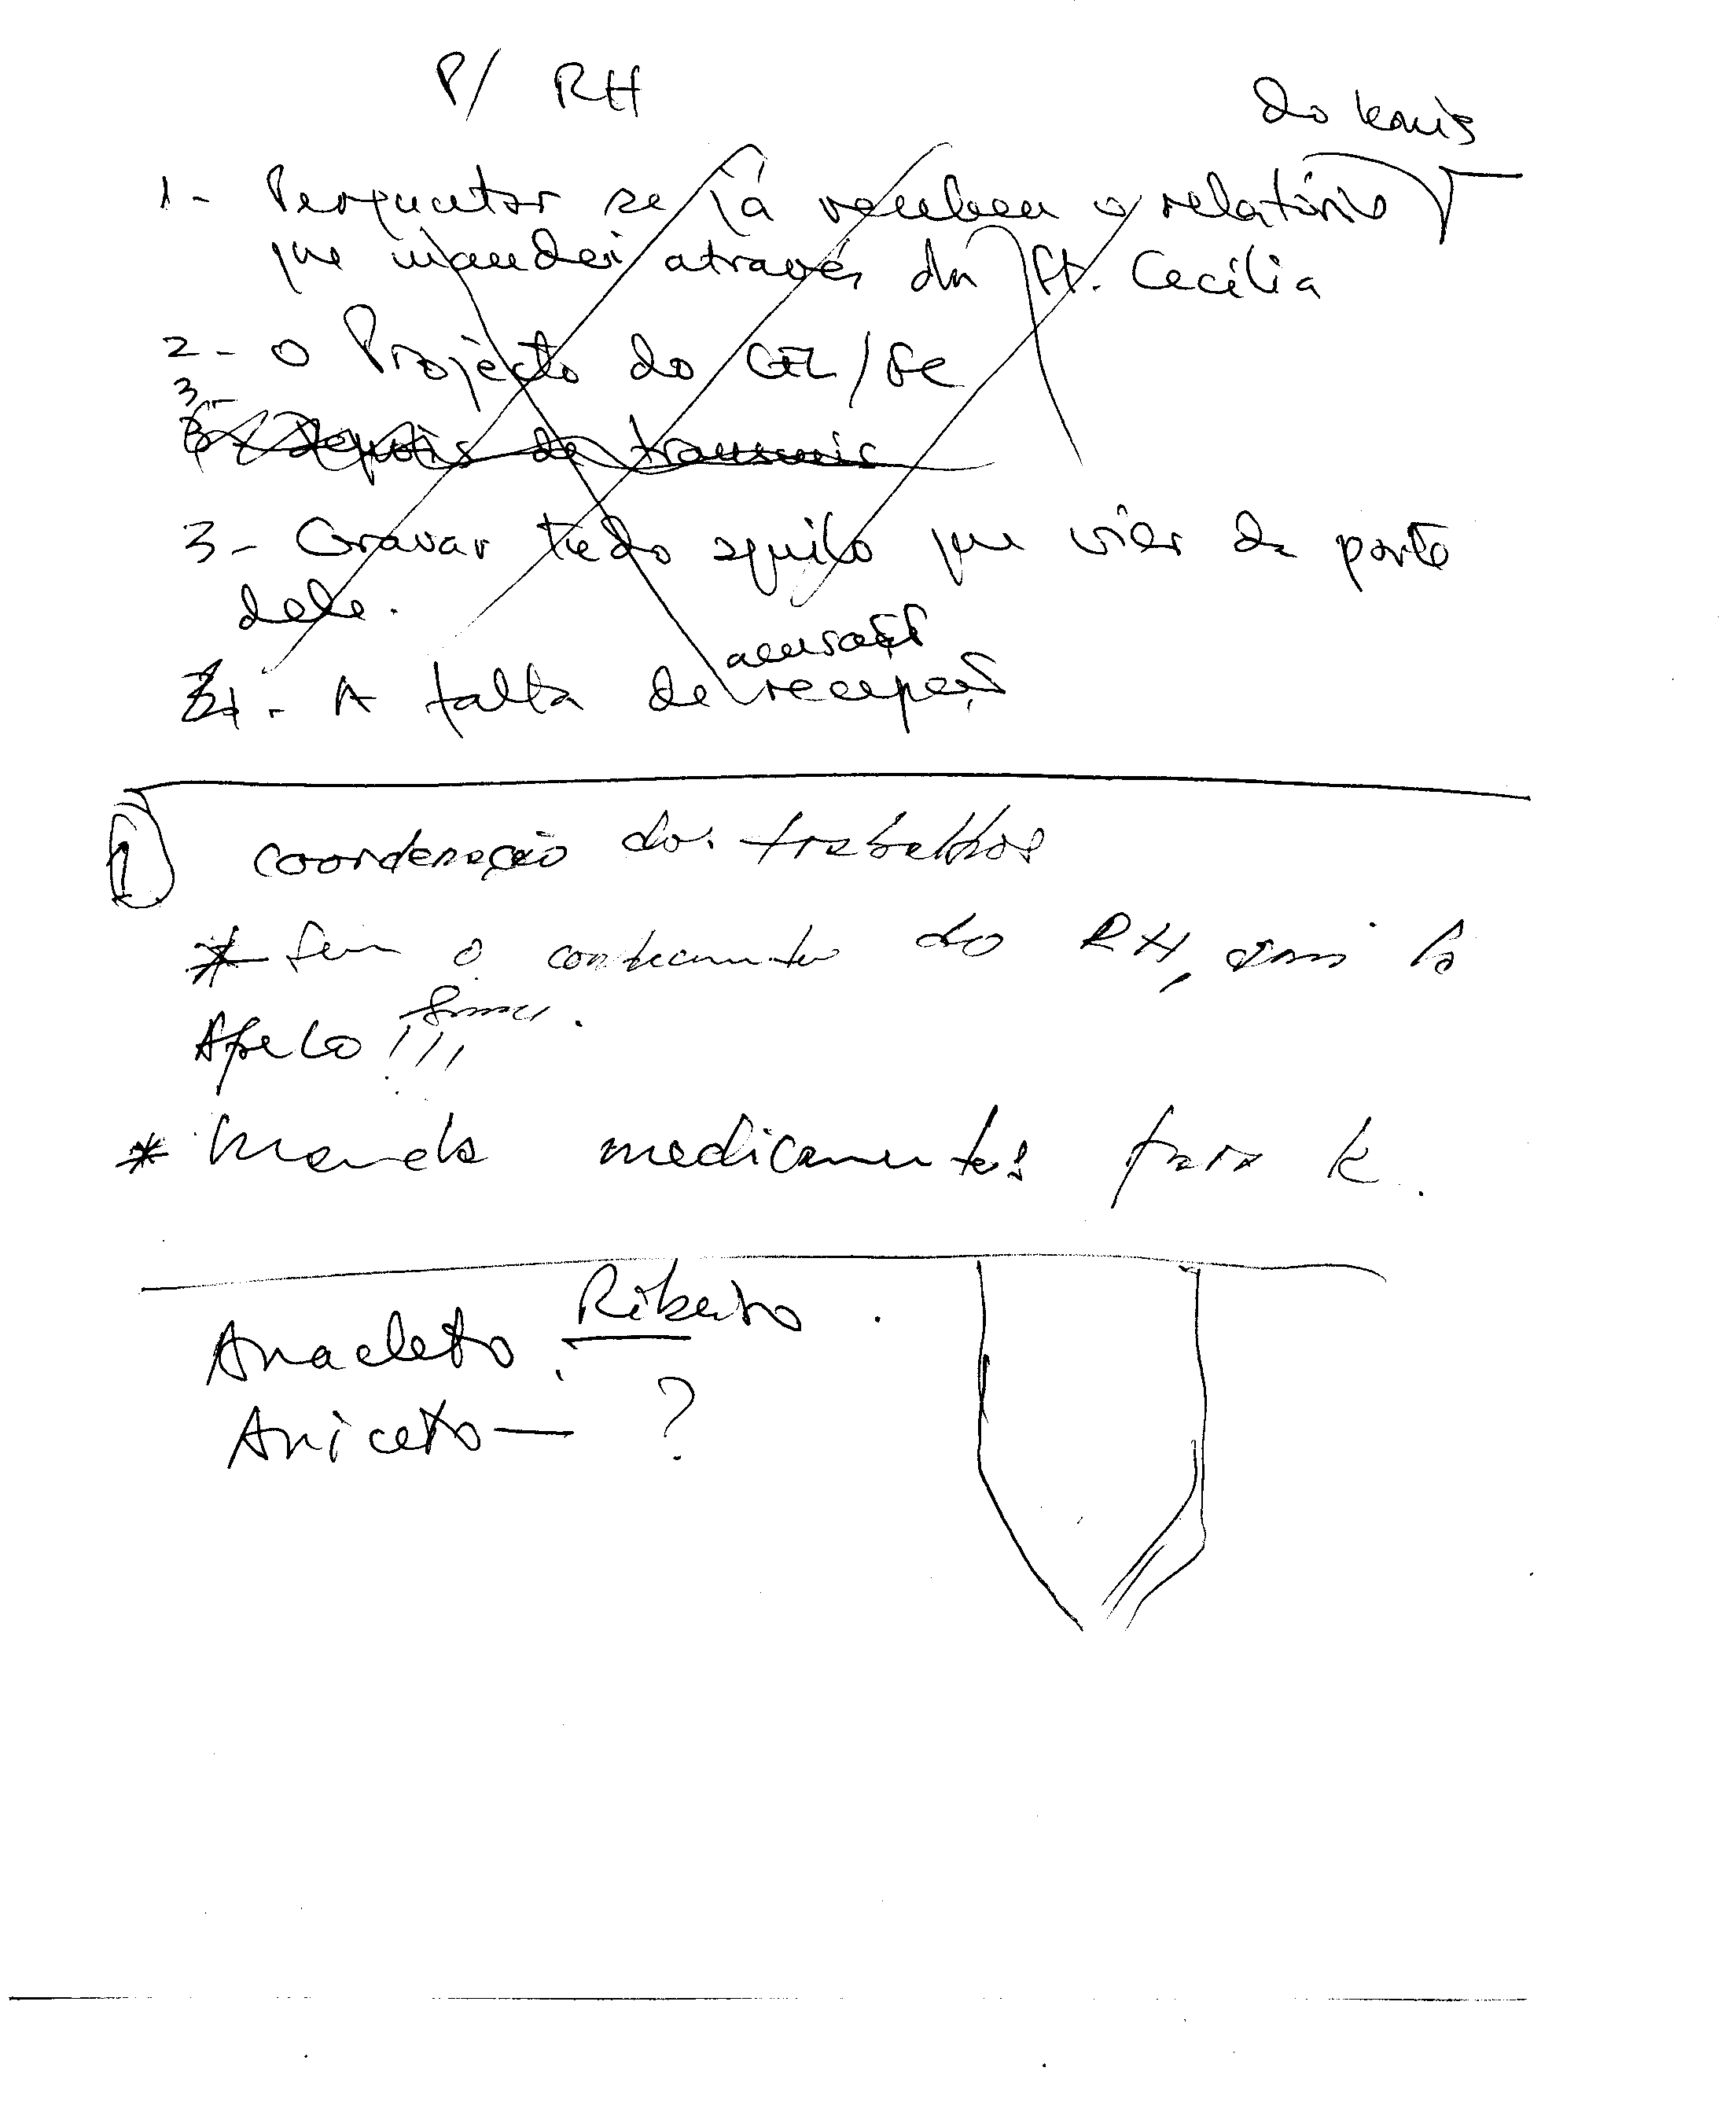 P/ RH
do Konis
1- Perguntar se já recebeu o relatório
que mandei através da St. Cecília
2- O Projecto do CTL/FE
3-
3- depois de transmis
3- Gravar tudo aquilo que vier da parte
dele.
acusação
4- A falta de recepção
1 coordenação dos trabalhos
* Sem o conhecimento do RH,
Apelo !!!
* Manda medicamentos para k.
Ribeiro.
Anacleto:
Aniceto — ?